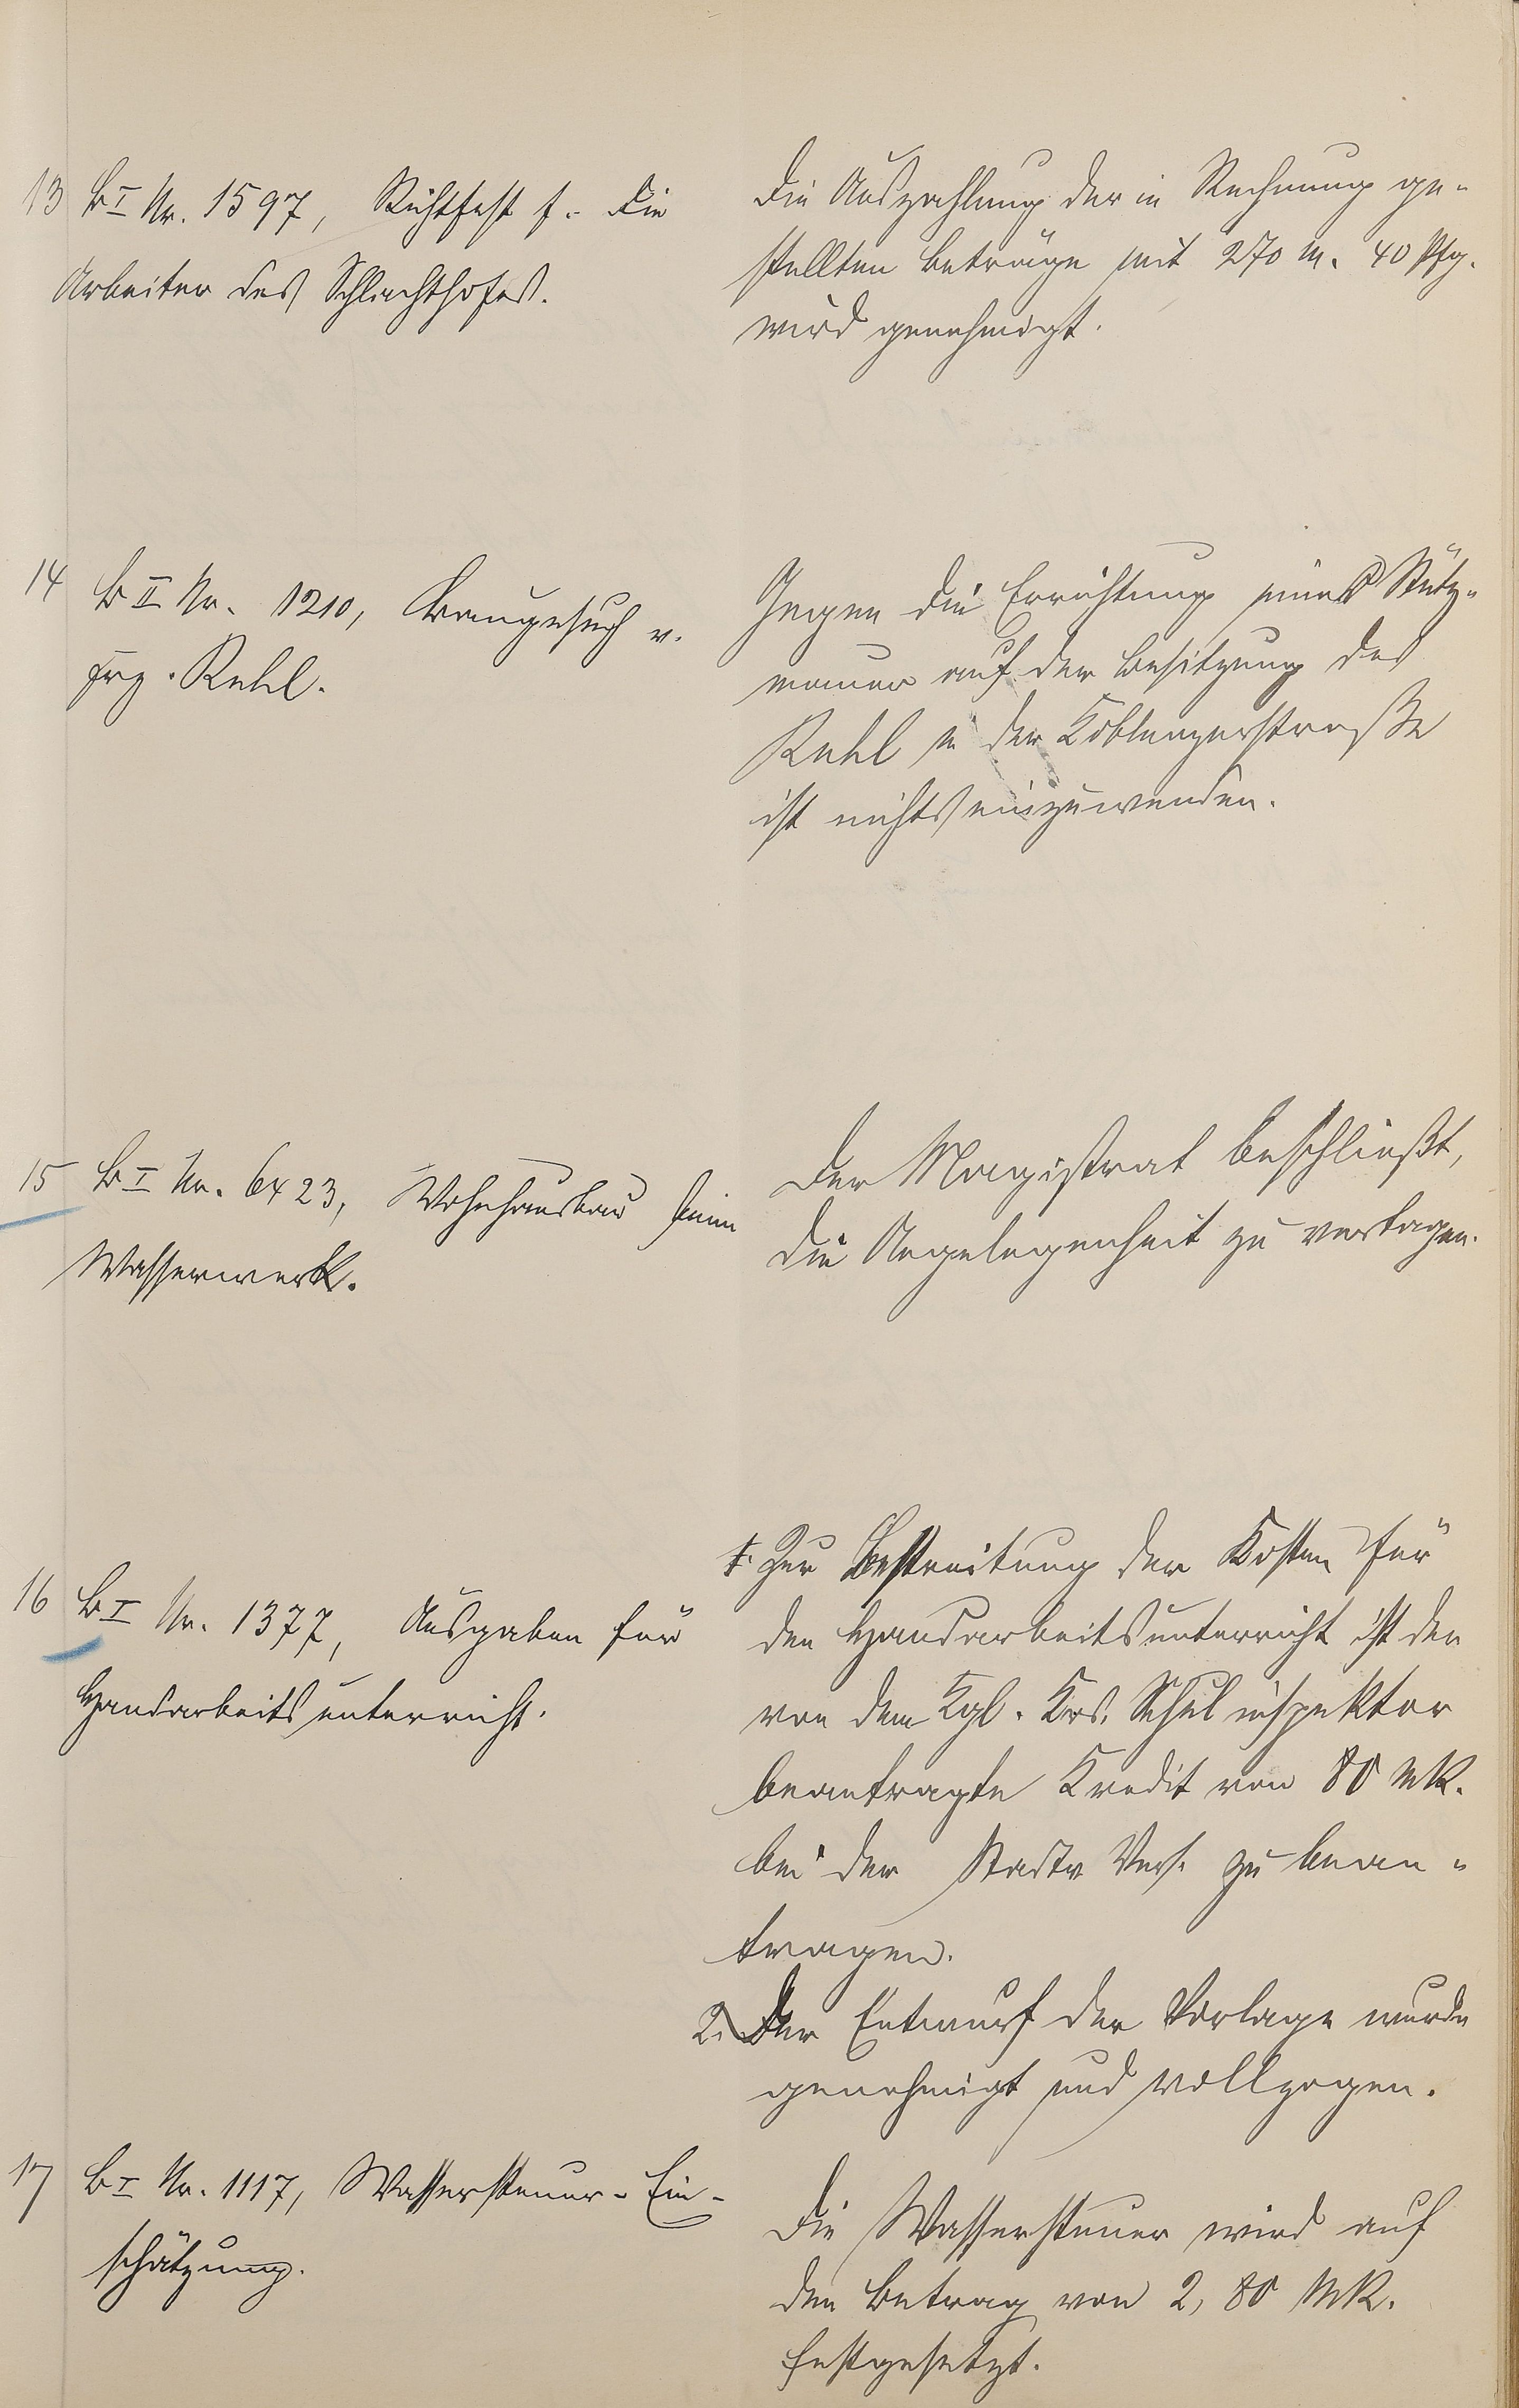 13 B I Nr. 1597, Richtfest f. die
Arbeiter des Schlachthofes.
Die Auszahlung der in Rechnung ge-
stellten Beträge mit 270 M. 40 Pfg.
wird genehmigt.
14 B II Nr. 1210, Baugesuch v.
Frz. Kehl.
Gegen die Errichtung einer Stütz-
mauer auf der Besitzung des
Kehl in der Koblenzerstraße
ist nichts einzuwenden.
15 B I Nr. 6423, Wohnhausbau beim
Wasserwerk.
Der Magistrat beschließt,
die Angelegenheit zu vertagen.
16 B I Nr. 1377, Ausgaben für
Handarbeitsunterricht.
1. Zur Bestreitung der Kosten für
den Handarbeitsunterricht ist der
von dem Kgl. Krs. Schulinspektor
beantragte Kredit von 80 Mk.
bei der Stadtv. Vers. zu bean-
tragen.
2. Der Entwurf der Vorlage wurde
genehmigt und vollzogen.
17 B I Nr. 1117, Wassersteuer-Ein-
schätzung.
Die Wassersteuer wird auf
den Betrag von 2,80 Mk.
festgesetzt.